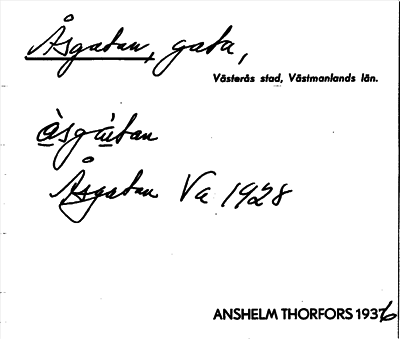 Åsgatan, gata,
Västerås stad, Västmanlands län.
Åsgatan Va 1928
ANSHELM THORFORS 1936